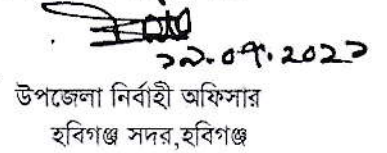 ১৯.০৭.২০২১
উপজেলা নির্বাহী অফিসার
হবিগঞ্জ সদর,হবিগঞ্জ